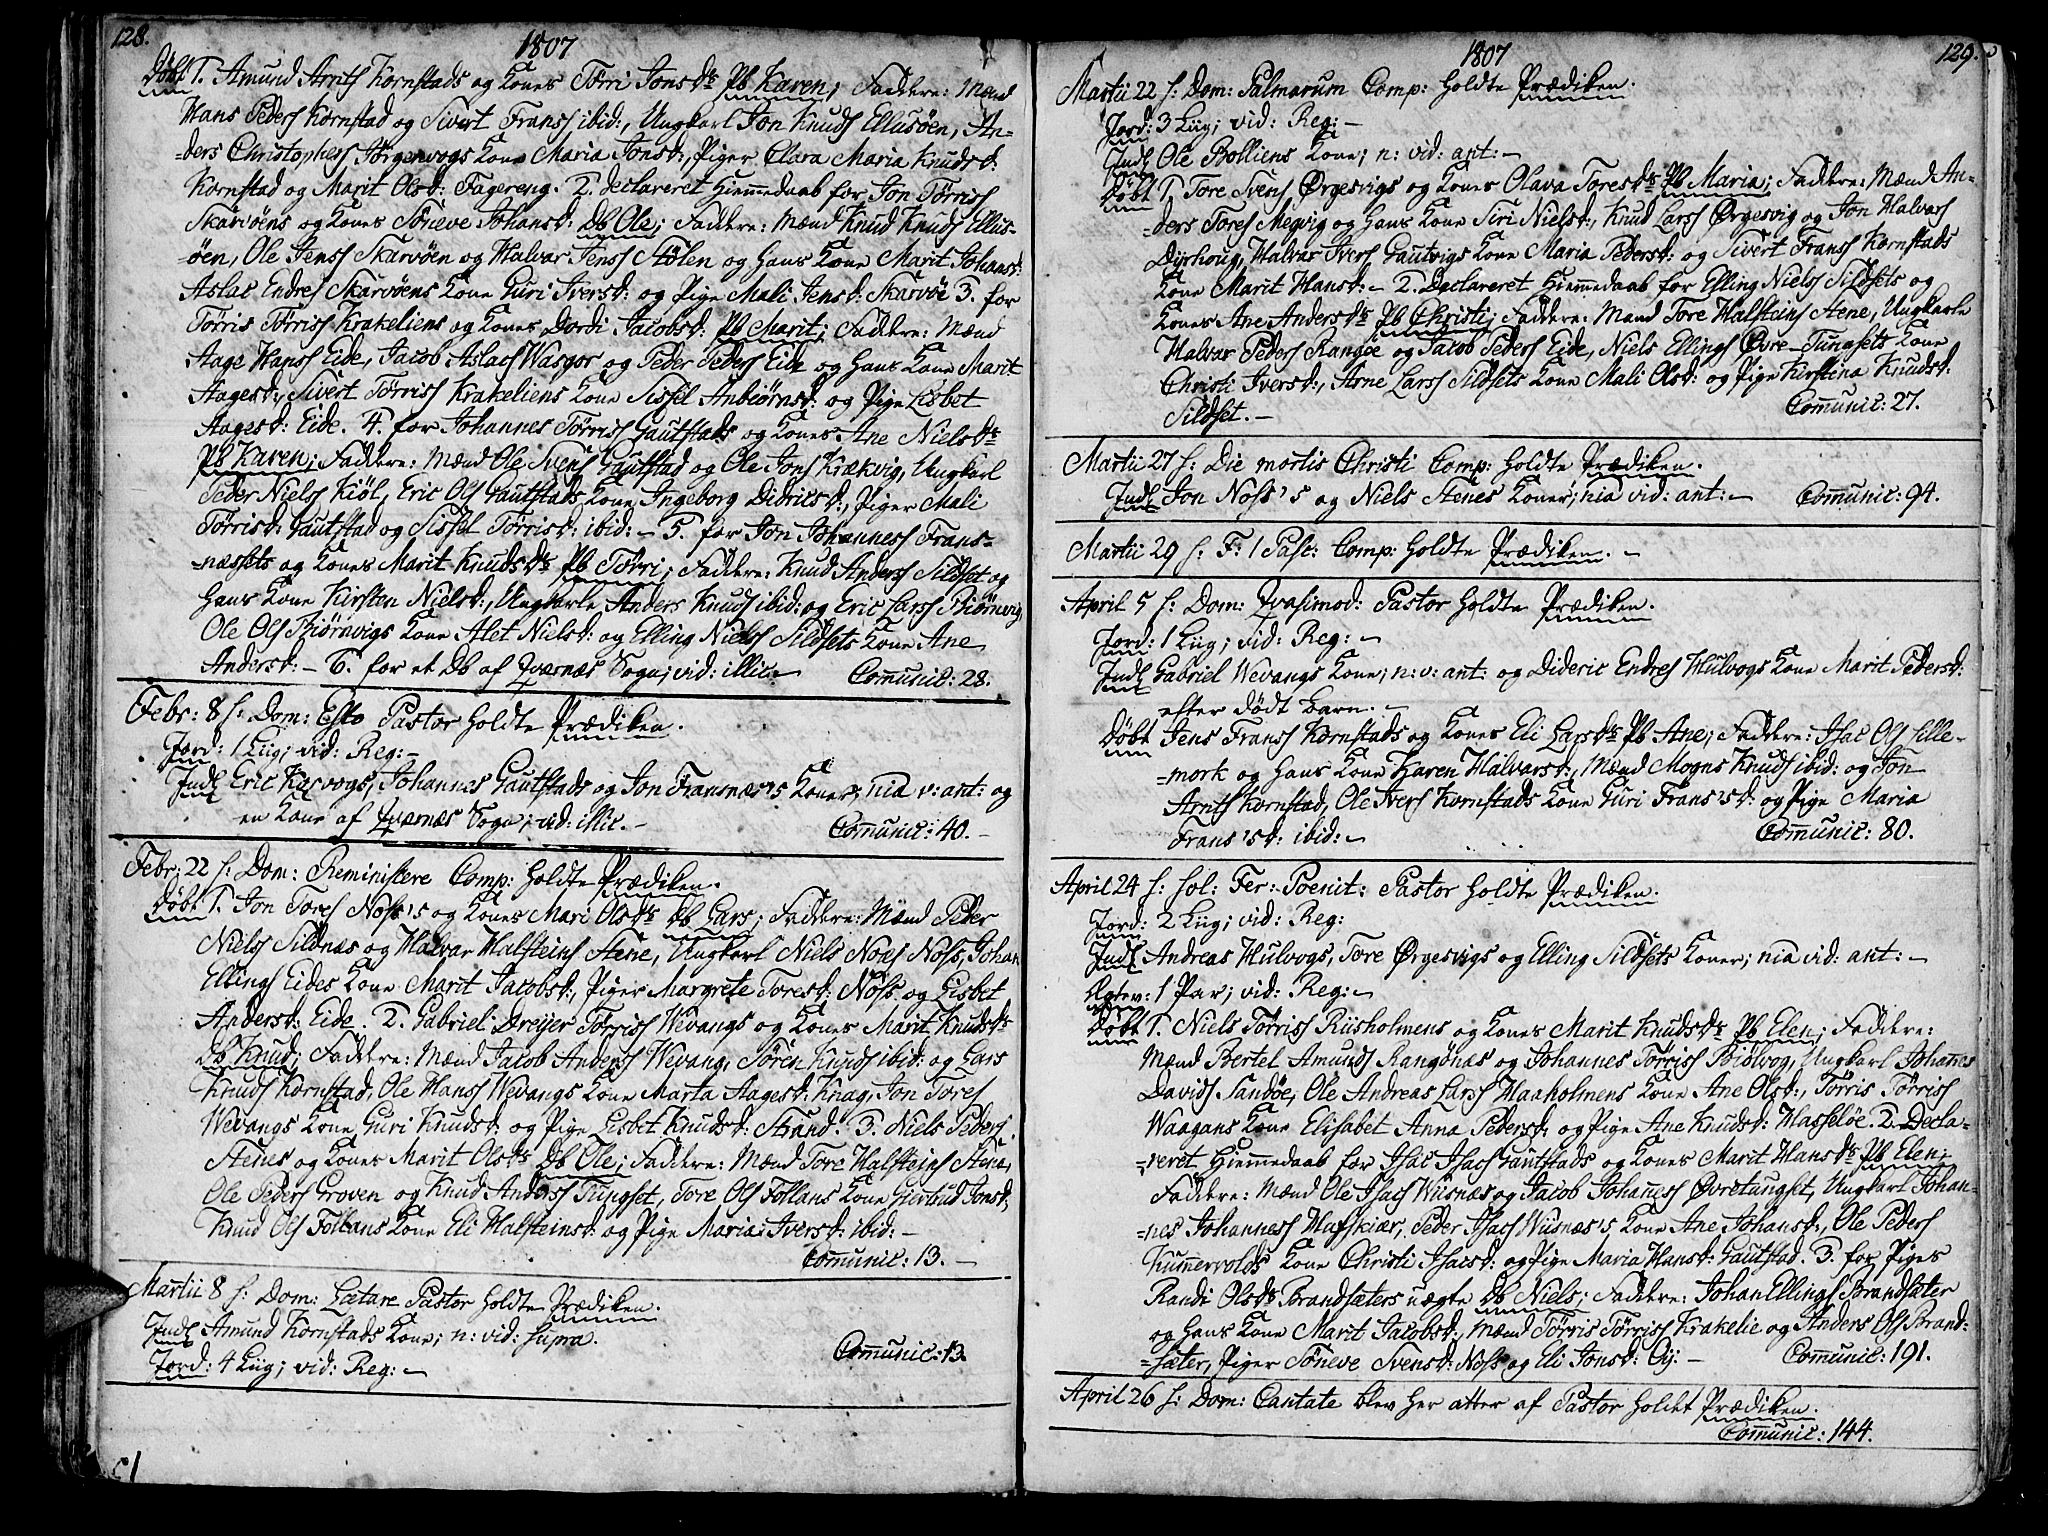 128.
1807
Døbt 1. Amund Arntss Kornstads og Kones Tørri Jonsdr Pb Karen; Faddere: Mænd
Hans Pederss Kornstad og Sivert Franss ibid:, Ungkarl Jon Knudss Ellusøen, An-
-ders Christopherss Jørgenvogs Kone Maria Jonsd:, Piger Clara Maria Knudsd:
Kornstad og Marit Olsd: Fagereng. 2. declareret Hiemmedaab for Jon Tørriss
Skarvøens og Kones Sønneve Johansd: Db Ole; Faddere: Mænd Knud Knudss Ellus-
-øen, Ole Jenss Skarvøen og Halvar Jenss Stølen og hans Kone Marit Johansd:
Aslac Endress Skarvøens Kone Guri Iversd: og Pige Mali Jensd: Skarvøe 3. for
Tørris Tørriss Krakeliens og Kones Dordi Jacobsd: Pb Marit; Faddere: Mænd
Aage Hanss Eide, Jacob Aslacss Wasgor og Peder Pederss Eide og hans Kone Marit
Aagesd:, Sivert Tørriss Krakeliens Kone Sissel Anbiørnsd: og Pige Lisbet
Aagesd: Eide. 4. for Johannes Tørriss Gautstads og Kones Ane Nielsdr
Pb Karen; Faddere: Mænd Ole Svenss Gautstad og Ole Jonss Krækvig, Ungkarl
Peder Nielss Kiøl, Eric Olss Gautstads Kone Ingeborg Didricsd:, Piger Mali
Tørrisd: Gautstad og Sissel Tørrisd: ibid: - 5. for Jon Johanness Frans-
-næssets og Kones Marit Knudsdr Pb Tørri; Faddere: Knud Anderss Sildset og
hans Kone Kirsten Nielsd:, Ungkarle Anders Knudss ibid: og Eric Larss Biørnvig
Ole Olss Biørnvigs Kone Alet Nielsd: og Elling Nielss Sildsets Kone Ane
Andersd: - 6. for et Db af Qværnæs Sogn; vid: illic. - Comunic: 28.
Febr: 8 s: Dom: Esto Pastor holdte Prædiken.
Jord: 1 Liig; vid: Reg: -
Indl Eric Karvogs, Johannes Gautstads og Jon Fransnæs's Koner; nia v: ant: og
en Kone af Qværnæs Sogn; vid: illic. - Comunic: 40. -
Febr: 22 s: Dom: Reministere Comp: holdte Prædiken.
Døbt 1. Jon Toress Noss's og Kones Mari Olsdr Db Lars; Faddere: Mænd Peder
Nielss Sildnæs og Halvar Halsteinss Stene, Ungkarl Niels Noess Noss, Johan
Ellingss Eides Kone Marit Jacobsd:, Piger Margrete Toresd: Noss og Lisbet
Andersd: Eide. 2. Gabriel Dreijer Tørriss Wevangs og Kones Marit Knudsdr
Db Knud; Faddere: Mænd Jacob Anderss Wevang, Søren Knudss ibid: og Lars
Knudss Kornstad, Ole Hanss Wevangs Kone Marta Aagesd: Knag, Jon Toress
Wevangs Kone Guri Knudsd: og Pige Lisbet Knudsd: Strand. 3. Niels Pederss
Stenes og Kones Marit Olsdr Db Ole; Faddere: Mænd Tore Halsteinss Stene,
Ole Pederss Groven og Knud Anderss Tungset, Tore Olss Follans Kone Giertrud Jonsd:,
Knud Olss Follans Kone Eli Halsteinsd: og Pige Maria Iversd: ibid: -
Comunic: 13. -
Martii 8 s: Dom: Lætare Pastor holdte Prædiken.
Indl Amund Kornstads Kone; n: vid: supra. Comunic: 13.
Jord: 4 Liig; vid: Reg: -
129.
1807
Martii 22 s: Dom: Palmarum Comp: holdte Prædiken.
Jord: 3 Liig; vid: Reg: -
Indl Ole Bolliens Kone; n: vid: ant: -
Døbt 1. Tore Svenss Ørgesvigs og Kones Olava Toresdr Pb Maria; Faddere: Mænd An-
-ders Toress Megvig og hans Kone Siri Nielsd:, Knud Larss Ørgesvig og Jon Halvarss
Dyrhoug, Halvar Iverss Gautvigs Kone Maria Pedersd: og Sivert Franss Kornstads
Kone Marit Hansd: - 2. Declareret Hiemmedaab for Elling Nielss Sildsets og
Kones Ane Andersdr Pb Christi; Faddere: Mænd Tore Halsteinss Stene, Ungkarle
Halvar Pederss Rangøe og Jacob Pederss Eide, Niels Ellingss Øvre-Tungsets Kone
Christi Iversd:, Arne Larss Sildsets Kone Mali Olsd: og Pige Kirstina Knudsd:
Sildset. - Comunic: 27.
Martii 27 s: Die mortis Christi Comp: holdte Prædiken.
Indl Jon Noss's og Niels Stenes Koner; nia vid: ant: - Comunic: 94.
Martii 29 s: F: 1 Pasc: Comp: holdte Prædiken. -
April 5 s: Dom: Qvasimod: Pastor holdte Prædiken.
Jord: 1 Liig; vid: Reg: -
Indl Gabriel Wevangs Kone; n: v: ant: og Dideric Endress Hulvogs Kone Marit Pedersd:
efter dødt Barn. -
Døbt Jens Franss Kornstads og Kones Eli Larsdr Pb Ane; Faddere: Isac Olss Lille-
-mork og hans Kone Karen Halvarsd:, Mænd Mogns Knudss ibid: og Jon
Arntss Kornstad, Ole Iverss Kornstads Kone Guri Frans'sd: og Pige Maria
Frans'sd: ibid: - Comunic: 80.
April 24 s: Sol: Fer: Poenit: Pastor holdte Prædiken.
Jord: 2 Liig; vid: Reg:
Indl Andreas Hulvogs, Tore Ørgesvigs og Elling Sildsets Koner; nia vid: ant: -
Ægtev: 1 Par; vid: Reg: -
Døbt 1. Niels Tørriss Riisholmens og Kones Marit Knudsdr Pb Elen; Faddere:
Mænd Bertel Amundss Rangønæs og Johannes Tørriss Biølvog, Ungkarl Johanes
Davidss Sandøe, Ole Andreas Larss Haaholmens Kone Ane Olsd:, Tørris Tørriss
Waagans Kone Elisabet Anna Pedersd: og Pige Ane Knudsd: Hasseløe. 2. Decla-
-reret Hiemmedaab for Isac Isacss Gautstads og Kones Marit Hansdr Pb Elen;
Faddere: Mænd Ole Isacss Wiisnæs og Jacob Johaness Øvretungset, Ungkarl Johan-
-nes Johanness Hafskiær, Peder Isacss Wiisnæs's Kone Ane Johansd:, Ole Pederss
Kummervolds Kone Christi Isacsd: og Pige Maria Hansd: Gautstad. 3. for Piges
Randi Olsdr Brandsæters uægte Db Niels; Faddere: Johan Ellingss Brandsæter
og hans Kone Marit Jacobsd:, Mænd Tørris Tørriss Krakelie og Anders Olss Brand-
-sæter, Piger Sønneve Svensd: Noss og Eli Jonsd: Øy. - Comunic: 191.
April 26 s: Dom: Cantate blev her atter af Pastor holdt Prædiken.
Comunic: 144.